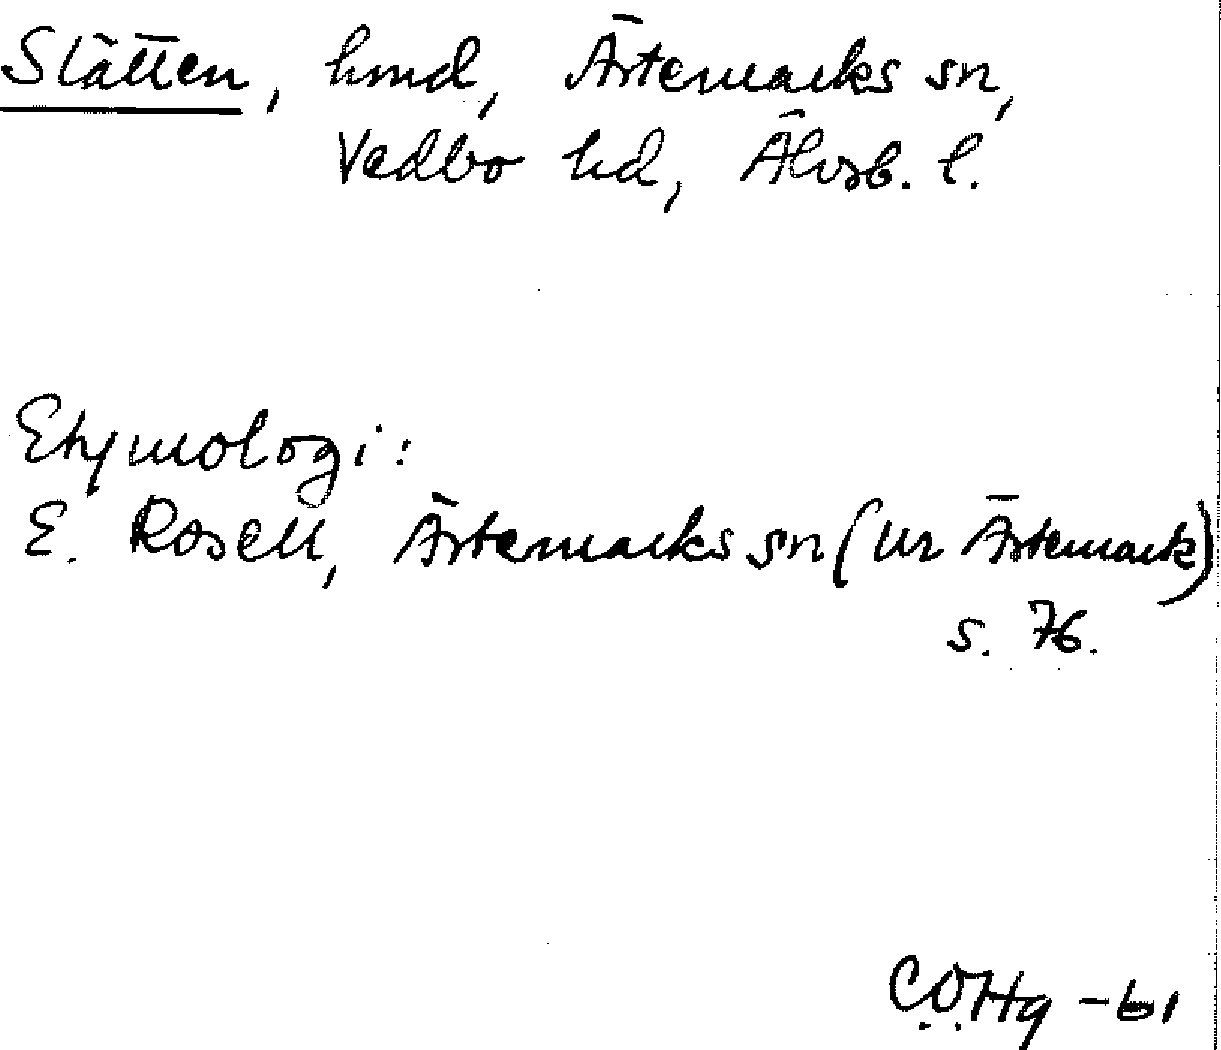 Slätten, hmd, Ärtemarks sn,
Vedbo hd, Älvsb. l.
Etymologi:
E. Rosell, Ärtemarks sn (ur Ärtemark)
s. 76.
COHg -61